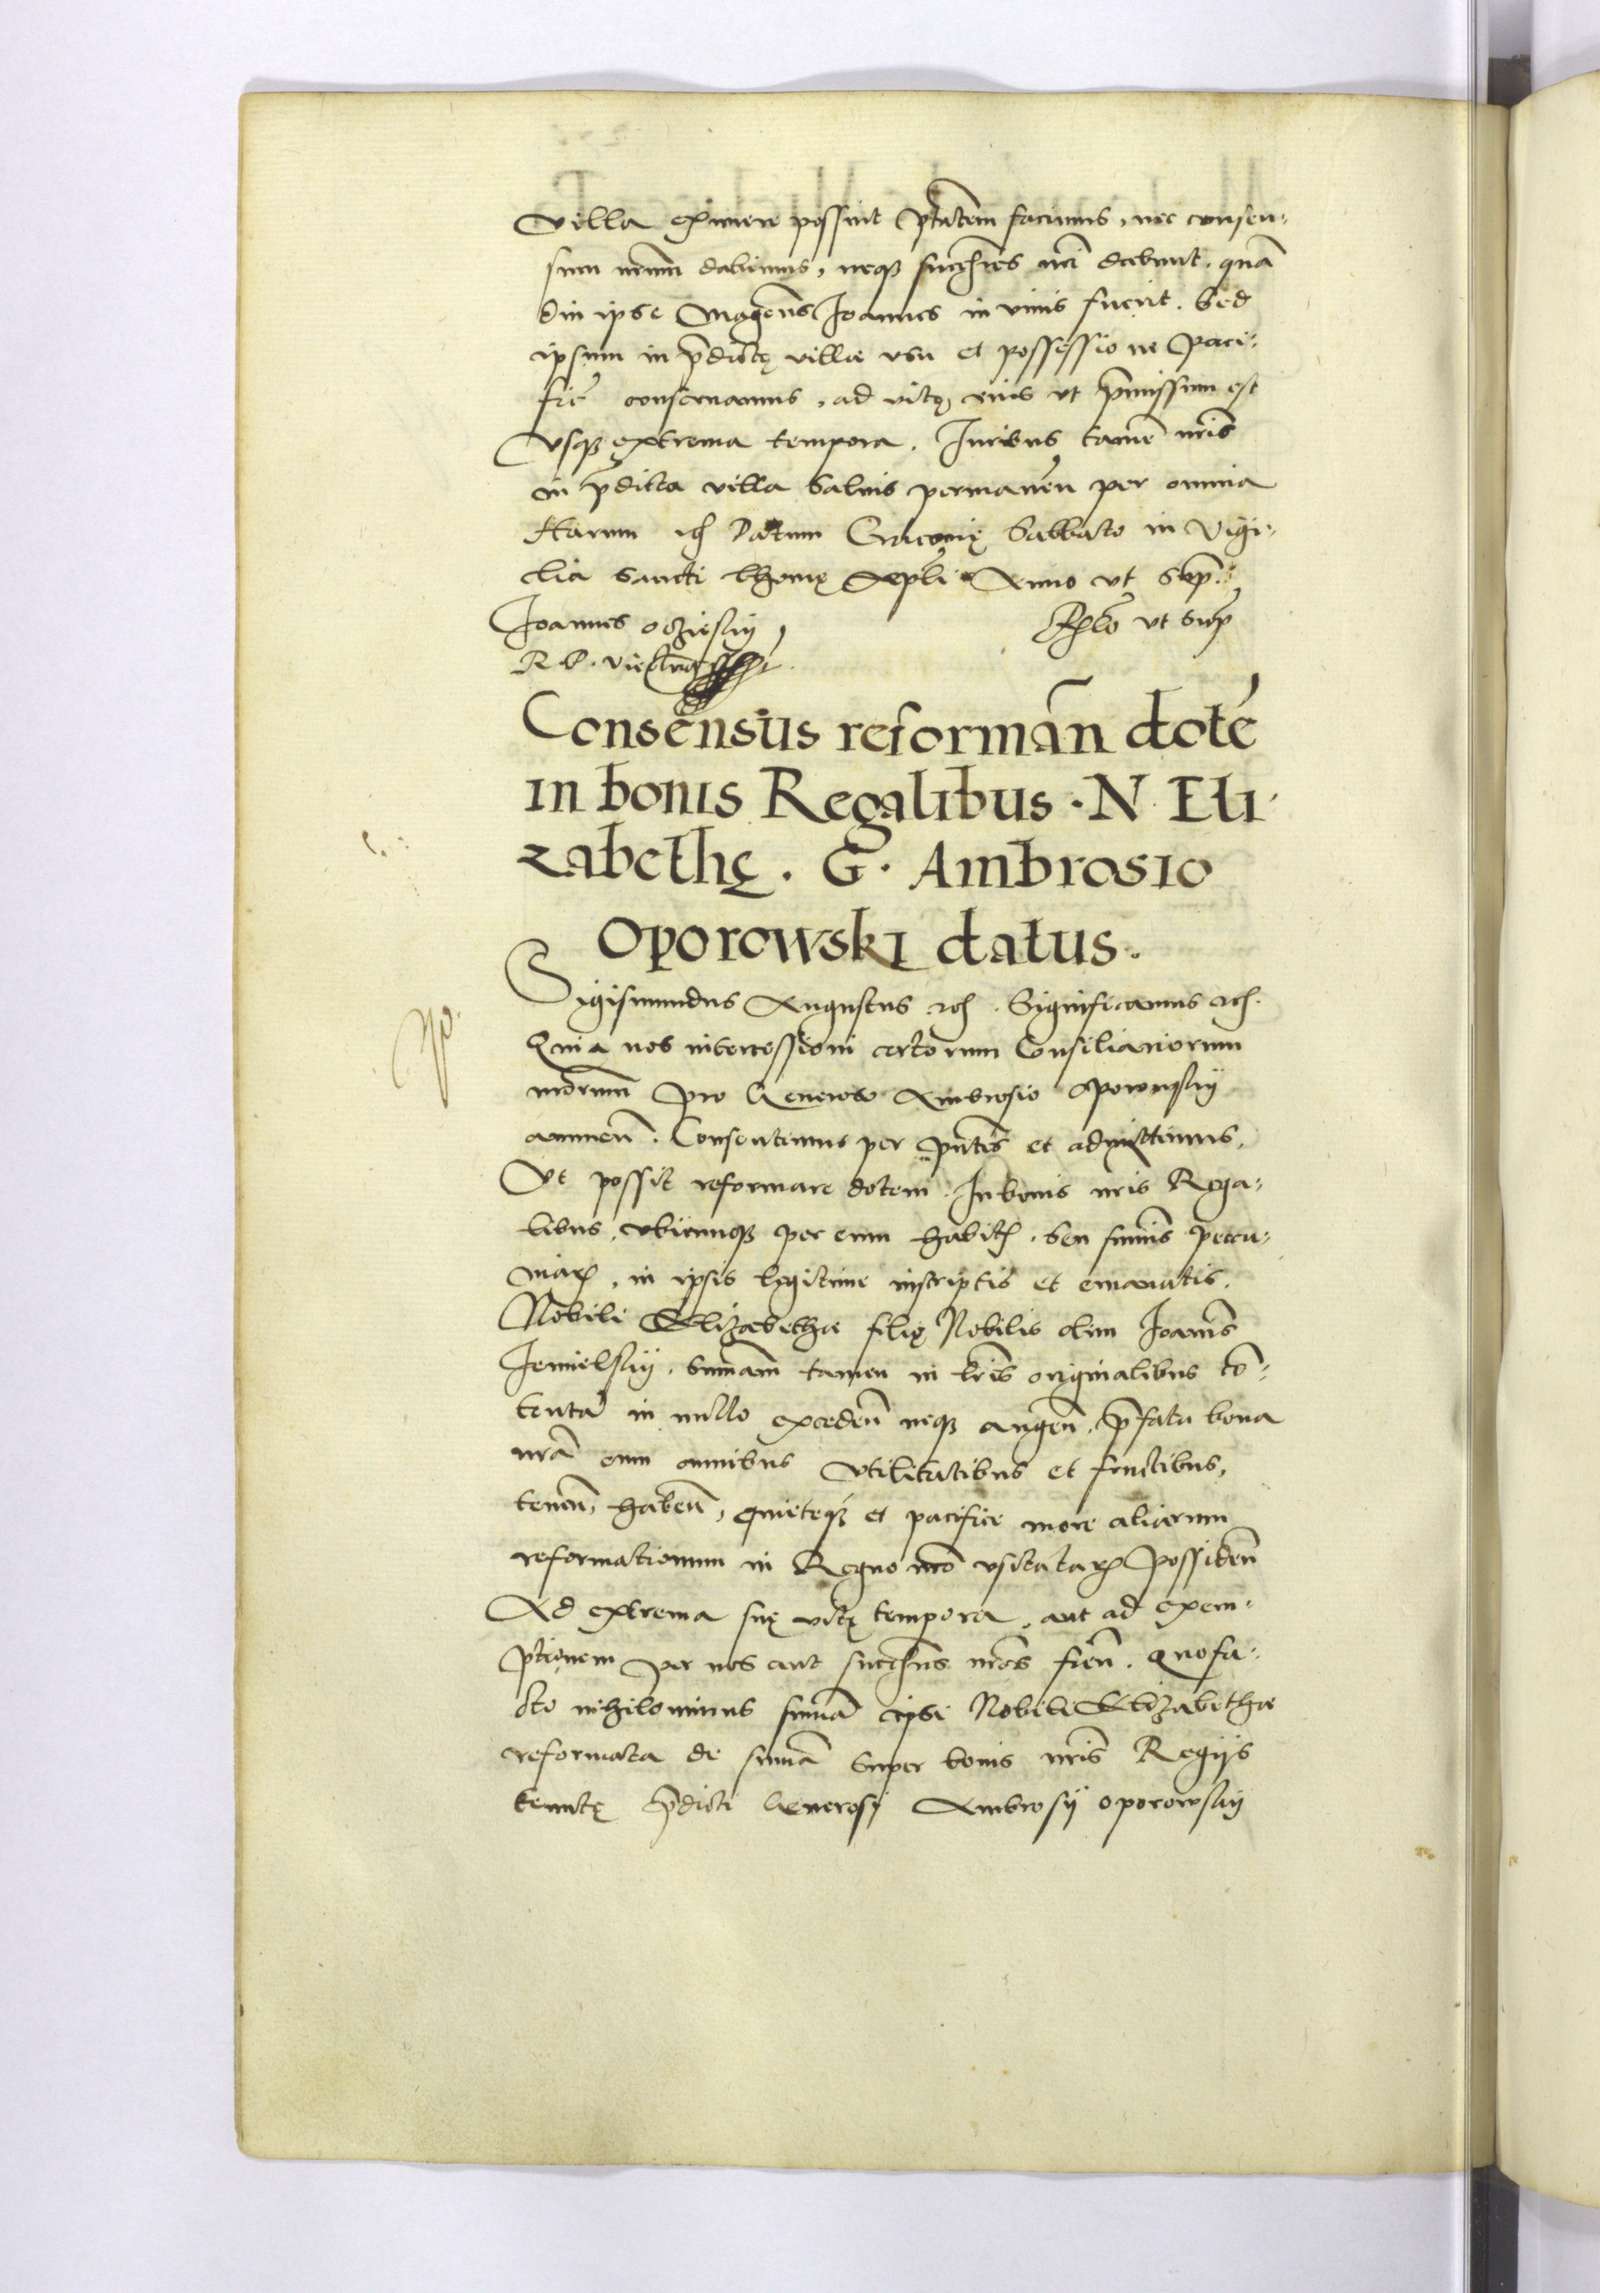 villa eximere possint p̄tatem faciemus, nec consen-
sum nr̄um dabimus, neqȝ successores nr̄i dabunt, quā
diu ipse Magcūs Joannes in vivis fuerit. Sed
ipsum in p̄dictę villae usu et possessione Paci-
ficē conservamus, ad vitę eius ut p̄missum est
usqȝ extrema tempora. Juribus tamē nr̄is
in p̄dicta villa salvis permanen̄ per omnia
Harum etc Datum Cracovię Sabbato in Vigi-
lia Sancti Thomę Ap̄li Anno ut sup̄.
Joannes oczieski
R. P. Vicecanc̄
Rel̄o ut sup̄
Consensus reforman̄ dotē
in bonis Regalibus . N. Eli-
zabethę . G. Ambrosio
Oporowski datus.
Sigismundus Augustus etc. Significamus etc.
Quia nos intercessioni certorum Consiliariorum
nr̄orum pro Generoso Ambrosio Oporowskij
annuen̄. Consentimus per p̄ntes et admittimus,
Ut possit reformare dotem. In bonis nr̄is Rega-
libus, ubicumqȝ per eum habitꝭ. seu summis pecu-
niarꝫ, in ipsis legitime inscriptis et emanatis.
Nobili Elizabethae filię Nobilis olim Joan̄is
Jemielskij. summam tamen in lr̄is originalibus cō-
tentā in nullo exceden̄ neqȝ augen̄. p̄fata bona
nr̄a cum omnibus utilitatibus et fructibus,
tenen̄, haben̄, quieteqȝ et pacifice more aliarum
reformationum in Regno nr̄o usitatarꝫ possiden̄
Ad extrema suę vitę tempora, aut ad exem-
ptionem per nos aut success̄es nr̄os fien̄. quo fa-
cto nihilominus summā ipsi Nobili Elizabethae
reformata de sum̄a super bonis nr̄is Regijs
tenutę p̄dicti Generosi Ambrosij oporowskij